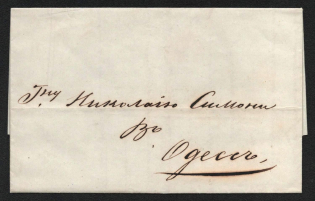 Гну Николаю Симони
Въ
Одессѣ,